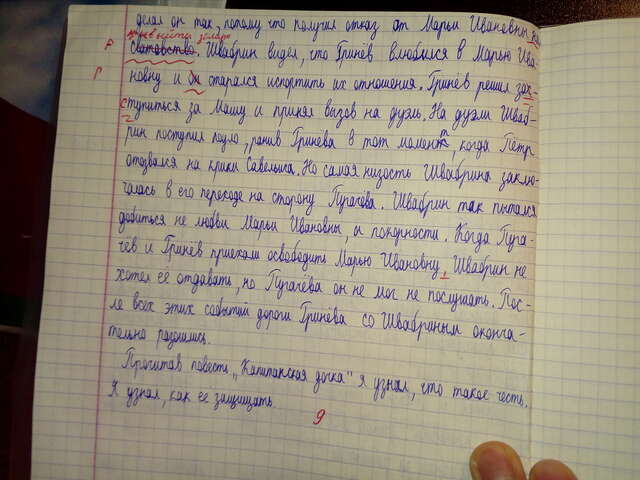 делал он так, потому что получил отказ от Марьи Ивановны на
выйти замуж
Р сватовство. Швабрин видел, что Гринёв влюбился в Марью Ива-
Г новну и он старался испортить их отношения. Гринёв решил зас-
ступиться за Машу и принял вызов на дуэль. На дуэли Шваб-
рин поступил подло, ранив Гринёва в тот момент, когда Пётр
отозвался на крики Савельича. Но самая низость Швабрина заклю-
чалась в его переходе на сторону Пугачёва. Швабрин так пытался
добиться не любви Марьи Ивановны, а покорности. Когда Пуга-
чёв и Гринёв приехали освободить Марью Ивановну, Швабрин не
хотел её отдавать, но Пугачёва он не мог не послушать. Пос-
ле всех этих событий дороги Гринёва со Швабриным оконча-
тельно разошлись.
Прочитав повесть „Капитанская дочка" я узнал, что такое честь.
Я узнал, как её защищать.
9